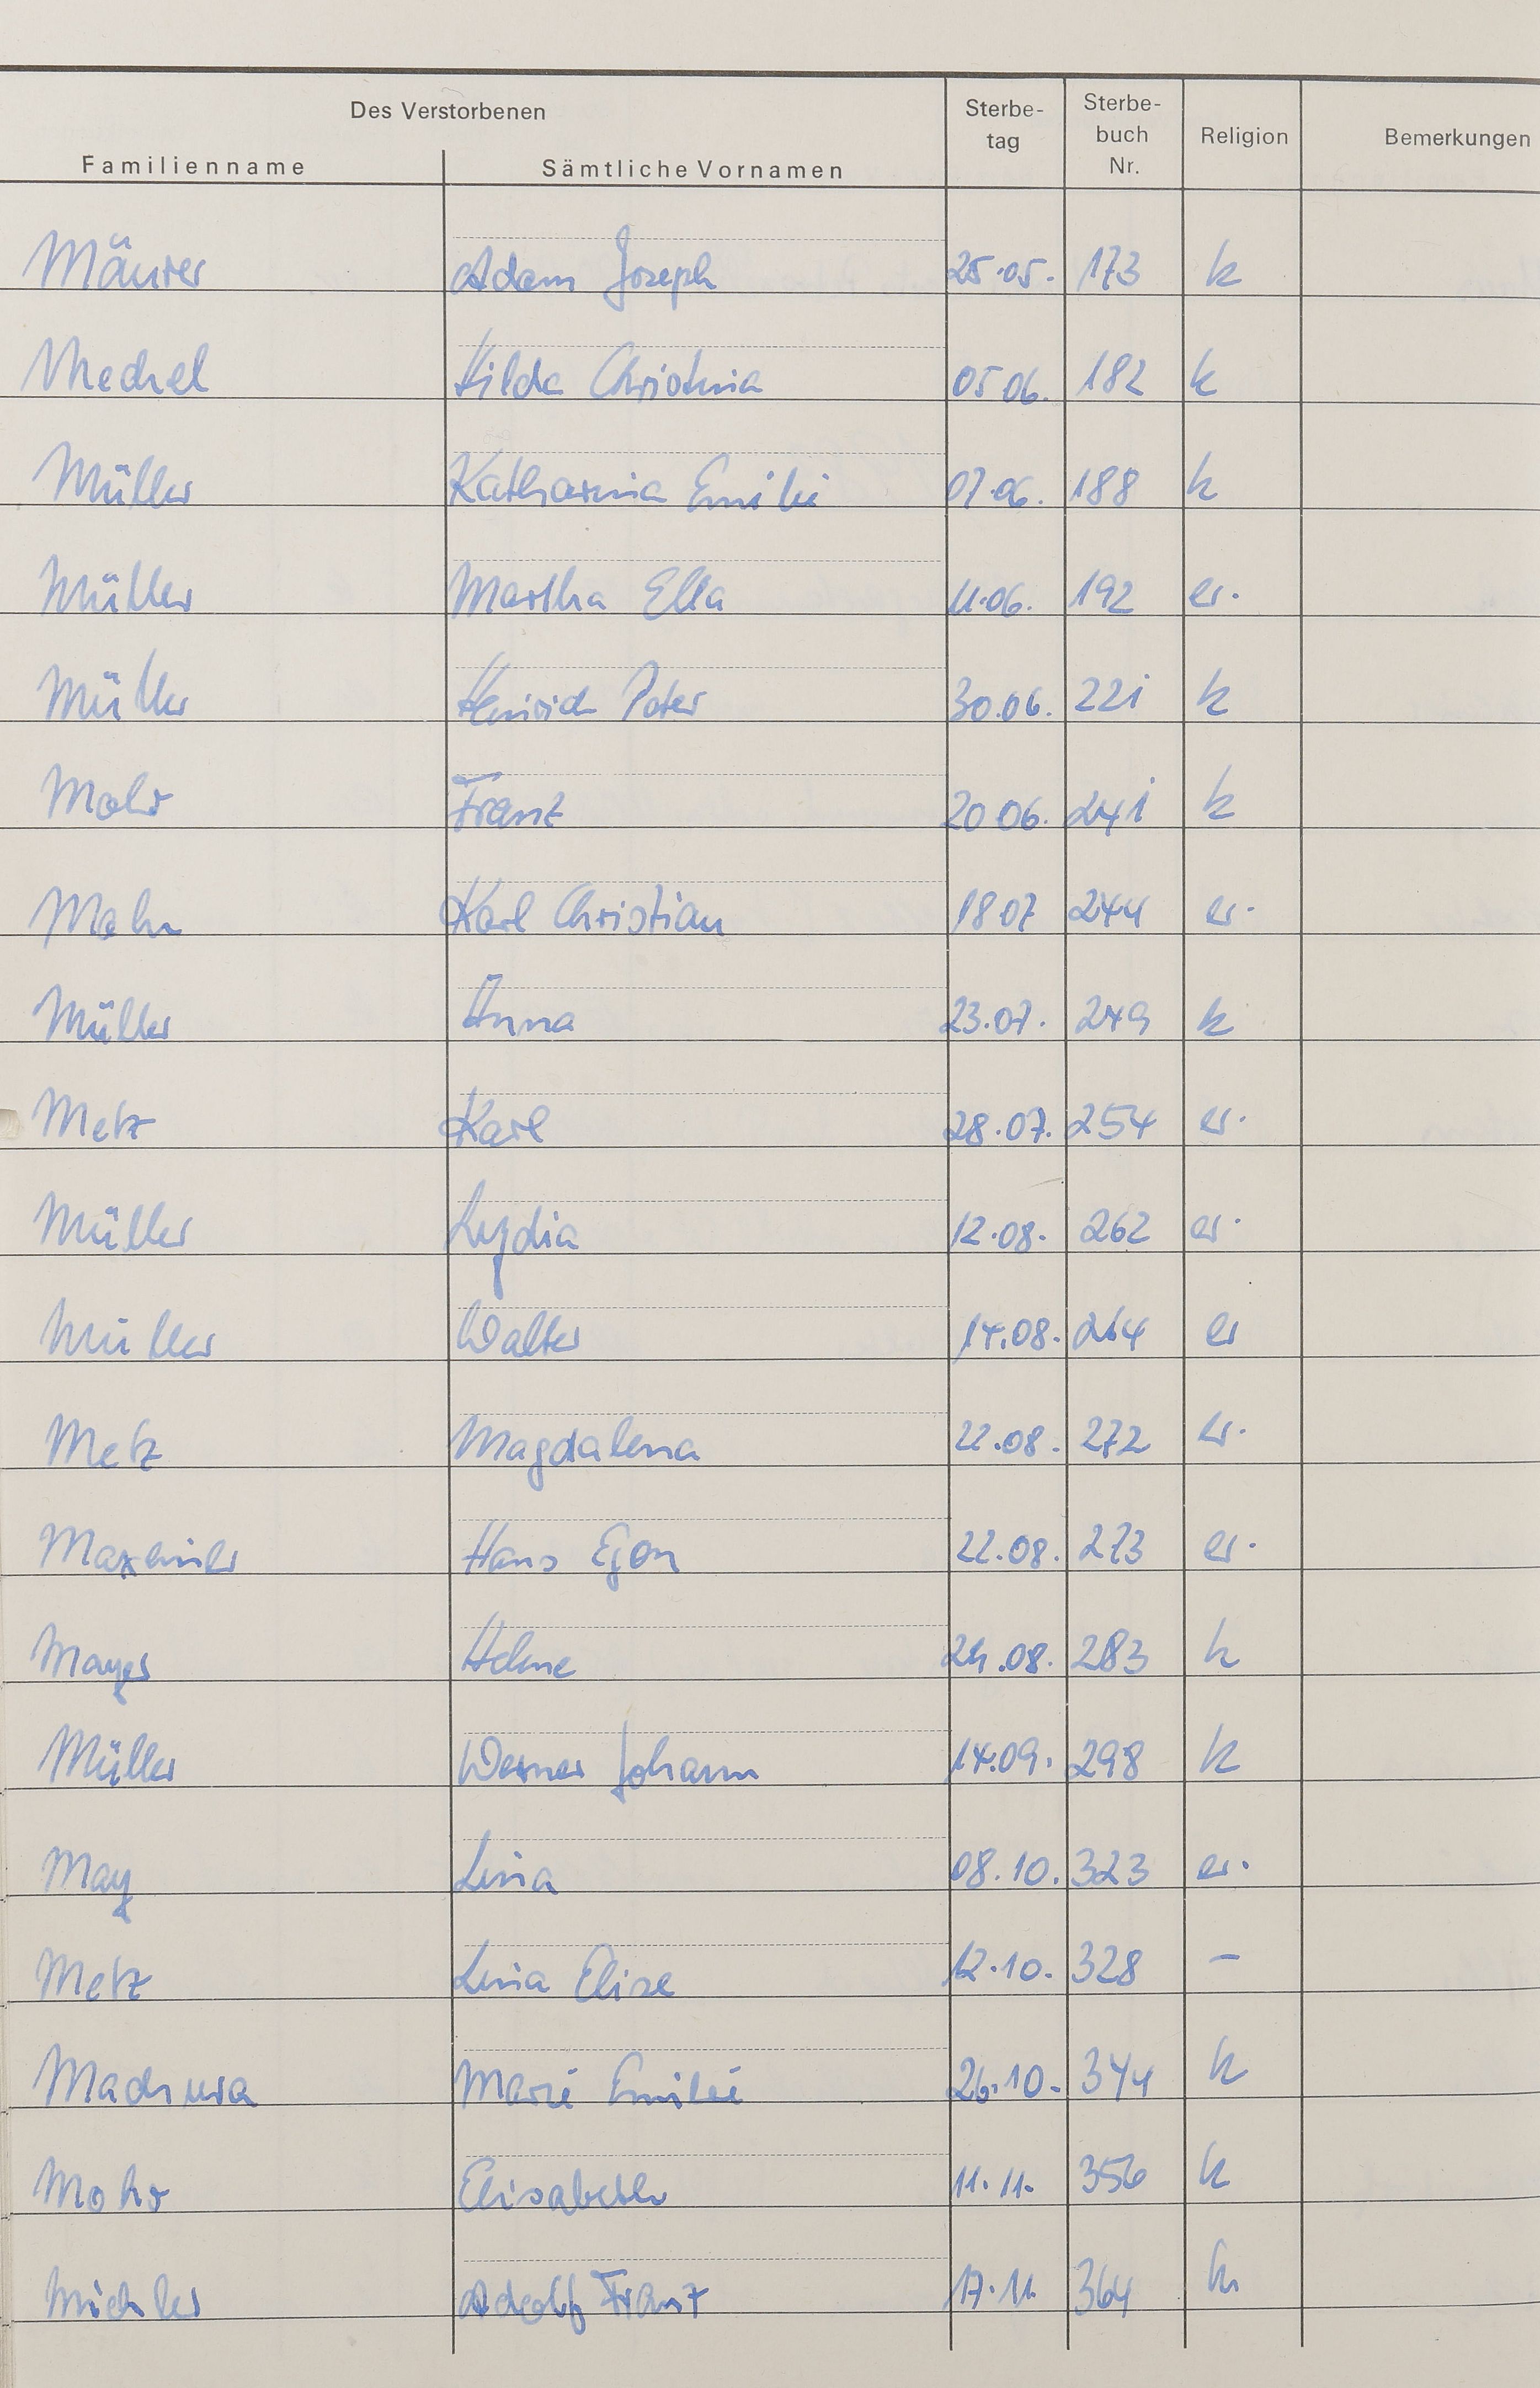 Des Verstorbenen
Familienname Sämtliche Vornamen Sterbe-tag Sterbe-buch Nr. Religion Bemerkungen
Mäurer Adam Joseph 25.05. 173 k
Mechel Hilda Christina 05 06. 182 k
Müller Katharina Emilie 07.06. 188 k
Müller Martha Ella 11.06. 192 ev.
Müller Heinrich Peter 30.06. 221 k
Mohr Franz 20 06. 241 k
Mohn Karl Christian 18 07 244 ev.
Müller Anna 23.07. 249 k
Metz Karl 28.07. 254 ev.
Müller Lydia 12.08. 262 ev.
Müller Walter 14.08. 264 ev
Metz Magdalena 22.08. 272 ev.
Maxeiner Hans Egon 22.08. 273 ev.
Mayer Helene 24.08. 283 k
Müller Werner Johann 14.09. 298 k
May Lina 08.10. 323 ev.
Metz Lina Elise 12.10. 328 –
Marie Emilie 26.10. 344 k
Mohr Elisabeth 11.11. 356 k
Michler Adolf Franz 17.11. 364 k